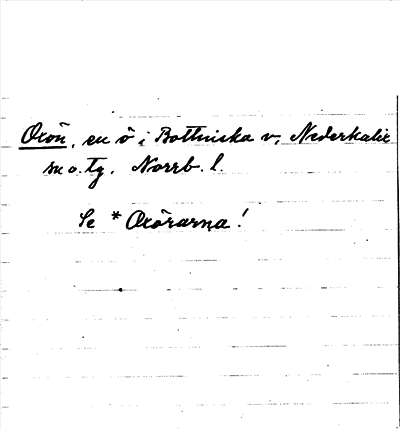 Oxön, en ö i Bottniska v, Nederkalix
sn o. tg. Norrb. l.
Se * Oxörarna!